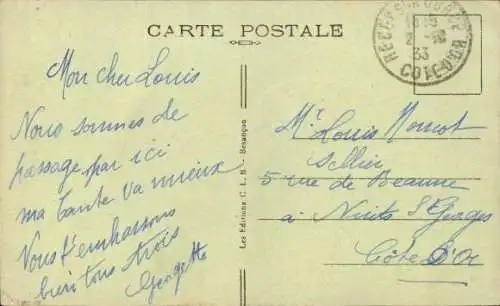 CARTE POSTALE
RECEY-S-OURCE
2 -10
33
COTE-D'OR
Mon cher Louis
Nous sommes de
passage par ici
ma tante va mieux
Vous t'embrassons
bien tous trois
Georgette
Les Editions C. L. B. - Besançon
Mr Louis
sellier
5 rue de Beaune
à Nuits St Georges
Côte d'Or